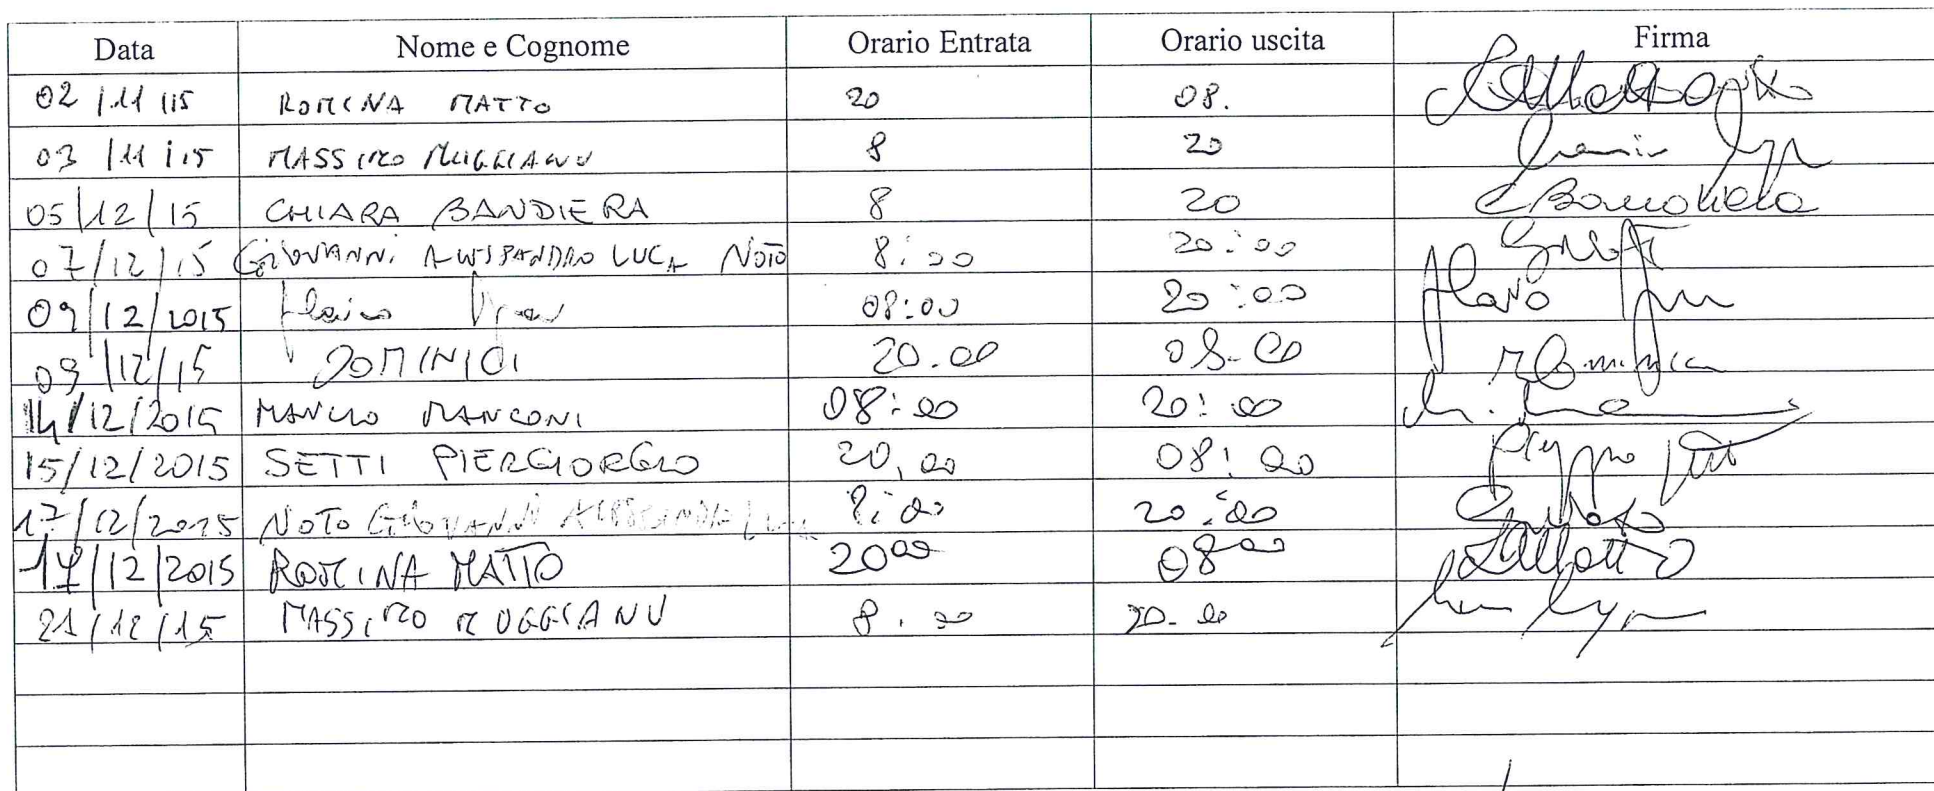 Data Nome e Cognome Orario Entrata Orario uscita Firma
02/11/15 ROMINA MATTO 20 08.
03/11/15 MASSIMO MUGGIANU 8 20
05/12/15 CHIARA BANDIERA 8 20 C Bandiera
07/12/15 GIOVANNI ALESSANDRO LUCA NOTO 8:00 20:00
09/12/2015 Flavio 08:00 20:00 Flavio
09/12/15 DOMINICI 20.00 08.00
14/12/2015 MANLIO MANCONI 08:00 20:00
15/12/2015 SETTI PIERGIORGIO 20,00 08:00
17/12/2015 NOTO GIOVANNI ALESSANDRO LUCA 8:00 20:00
17/12/2015 ROMINA MATTO 2000 0800
21/12/15 MASSIMO MUGGIANU 8.00 20.00